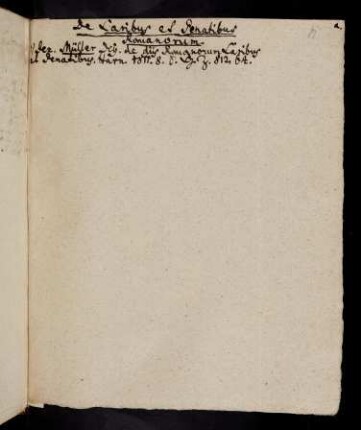 a.
De Laribus et Penatibus
Romanorum.
Müller de diis Romanorum Laribus
et Penatibus. 1811. 8. 812. 64.